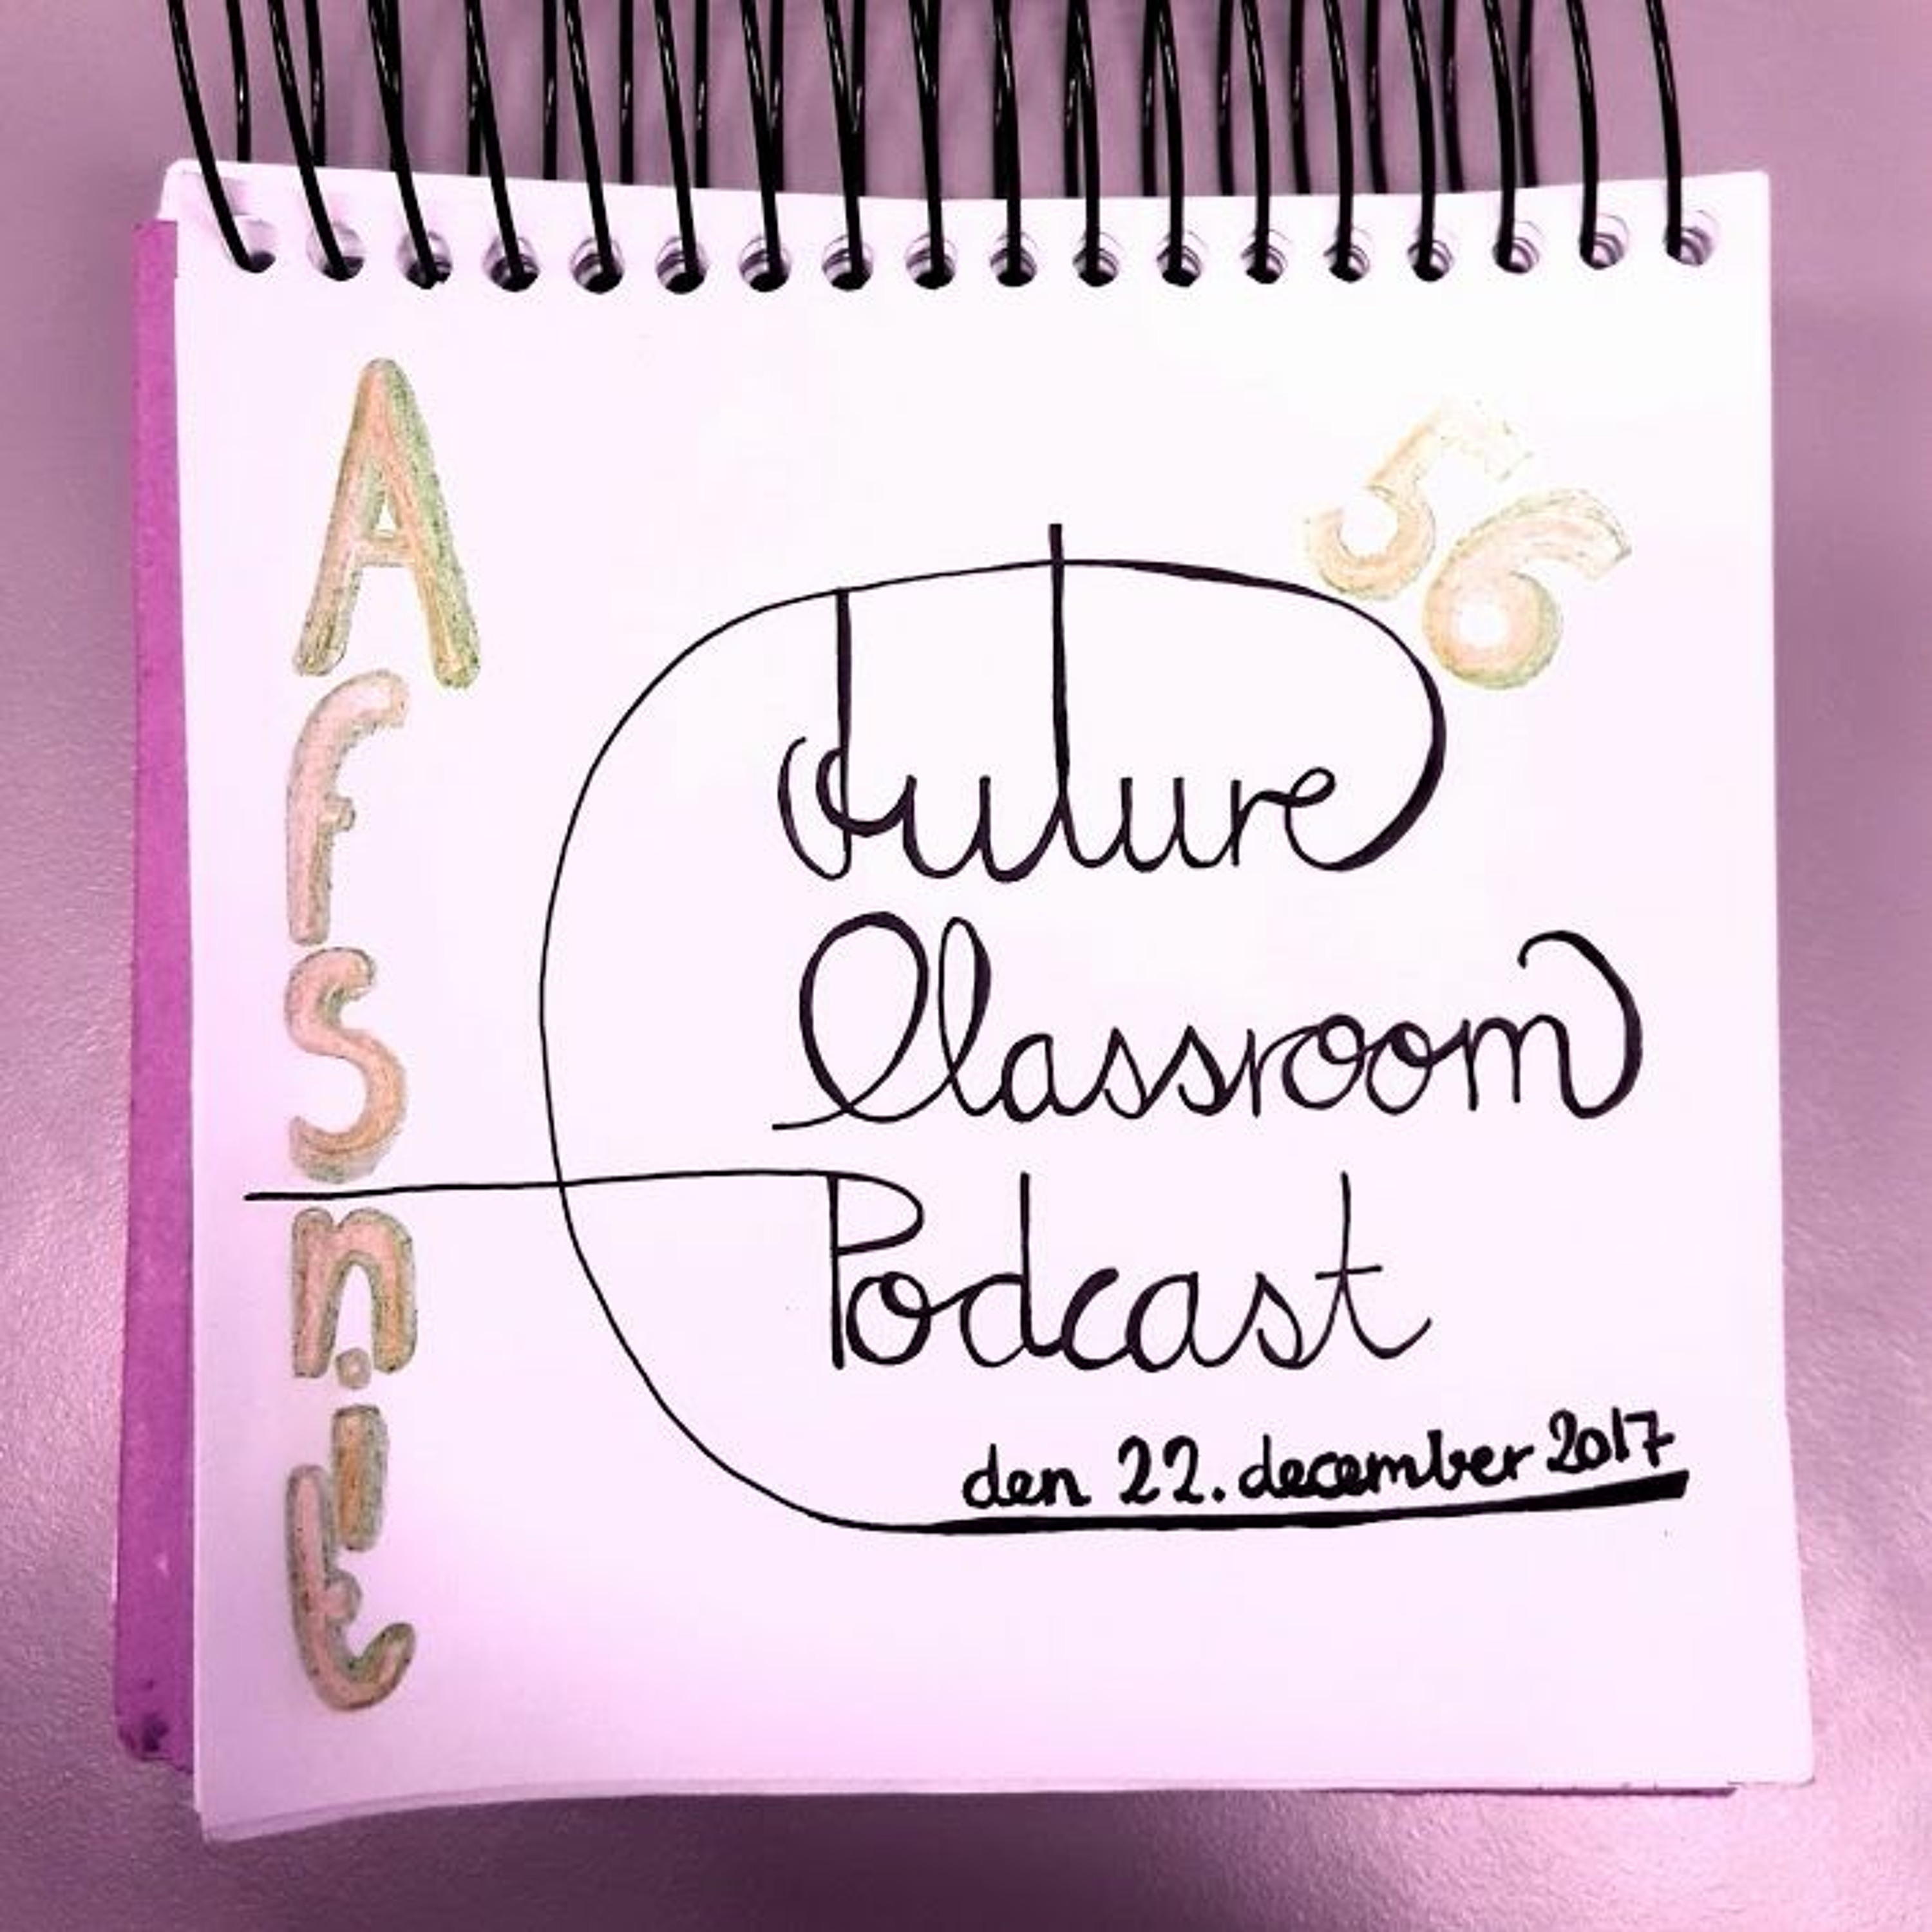 Afsnit
56
Future
Classroom
Podcast
den 22. december 2017